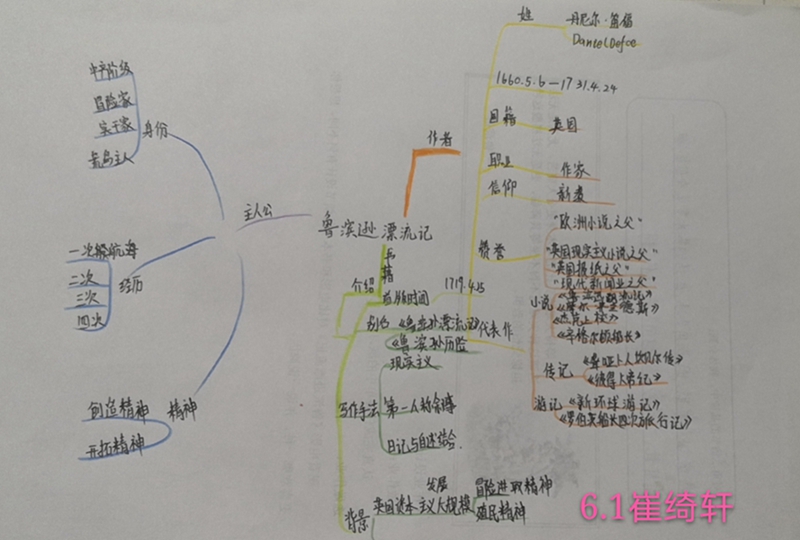 鲁滨逊漂流记
作者
姓
丹尼尔·笛福
Daniel Defoe
1660.5.6—1731.4.24
国籍
英国
职业
作家
信仰
新教
赞誉
"欧洲小说之父"
"英国现实主义小说之父"
"英国报纸之父"
"现代新闻业之父"
代表作
小说
《杰克上校》
《辛格尔顿船长》
传记
《彼得大帝纪》
游记
《新环球游记》
《罗伯英船长四次旅行记》
书籍
介绍
出版时间
1719.4.25
别名
《鲁宾孙漂流记》
《鲁滨孙历险
写作手法
现实主义
第一人称叙事
日记与自述结合.
背景
英国资本主义大规模
发展
冒险进取精神
殖民精神
主人公
身份
中产阶级
冒险家
实干家
荒岛主人
经历
一次般航海
二次
三次
四次
精神
创造精神
开拓精神
6.1崔绮轩